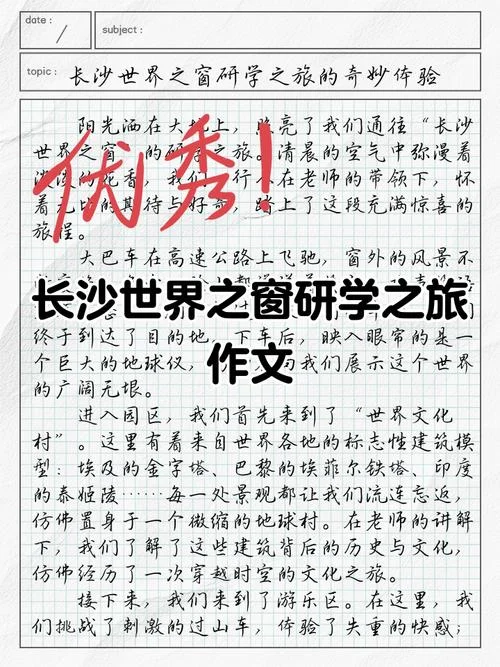 date:
subject:
topic: 长沙世界之窗研学之旅的奇妙体验
阳光洒在大地上，照亮了我们通往“长沙
世界之窗”的研学之旅。清晨的空气中弥漫着
花香，我们一行人在老师的带领下，怀
着的期待与好奇，踏上了这段充满惊喜的
旅程。
优秀！
大巴车在高速公路上飞驰，窗外的风景不
长沙世界之窗研学之旅
作文
终于到达了目的地，下车后，映入眼帘的是一
个巨大的地球仪，向我们展示这个世界
的广阔无垠。
进入园区，我们首先来到了“世界文化
村”。这里有着来自世界各地的标志性建筑模
型：埃及的金字塔、巴黎的埃菲尔铁塔、印度
的泰姬陵……每一处景观都让我们流连忘返，
仿佛置身于一个微缩的地球村。在老师的讲解
下，我们了解了这些建筑背后的历史与文化，
仿佛经历了一次穿越时空的文化之旅。
接下来，我们来到了游乐区。在这里，我
们挑战了刺激的过山车，体验了失重的快感；